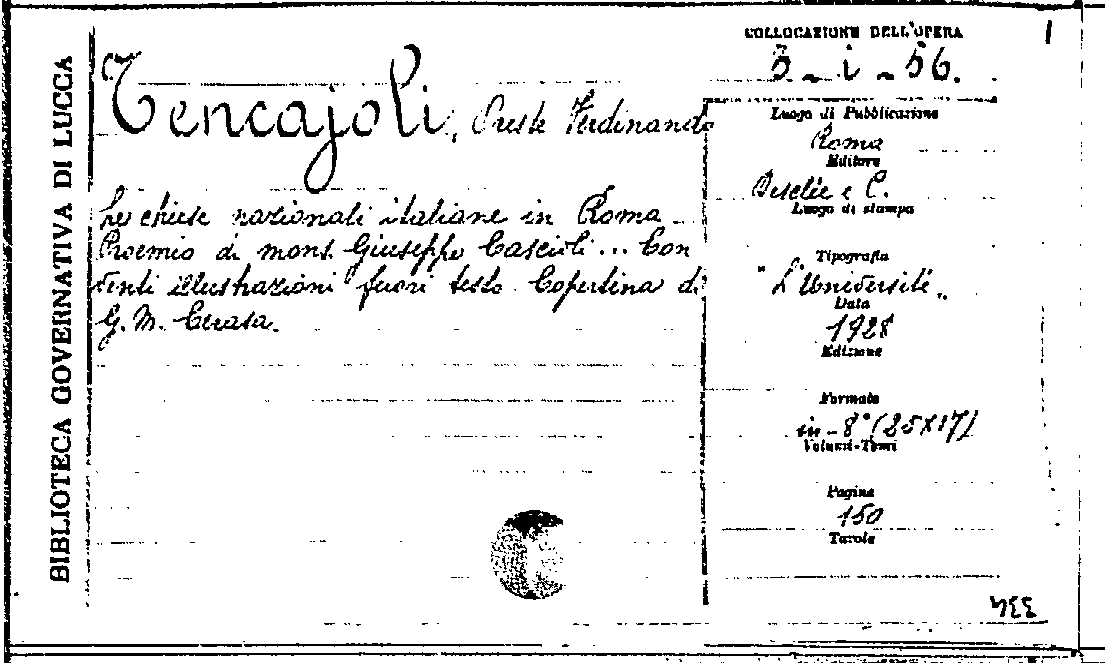 BIBLIOTECA GOVERNATIVA DI LUCCA
COLLOCAZIONE DELL'OPERA
3 - i - 56.
1
Tencajoli, Oreste Ferdinando
Le chiese nazionali italiane in Roma
Proemio di mons. Giuseppe Cascioli... Con
venti illustrazioni fuori testo. Copertina di
G. M. Cerasa.
Luogo di Pubblicazione
Roma
Editore
Desclée e C.
Luogo di stampa
Tipografia
"L'Université"
Data
1928
Edizione
Formato
in-8° (25X17)
Volumi-Tomi
Pagine
150
Tavole